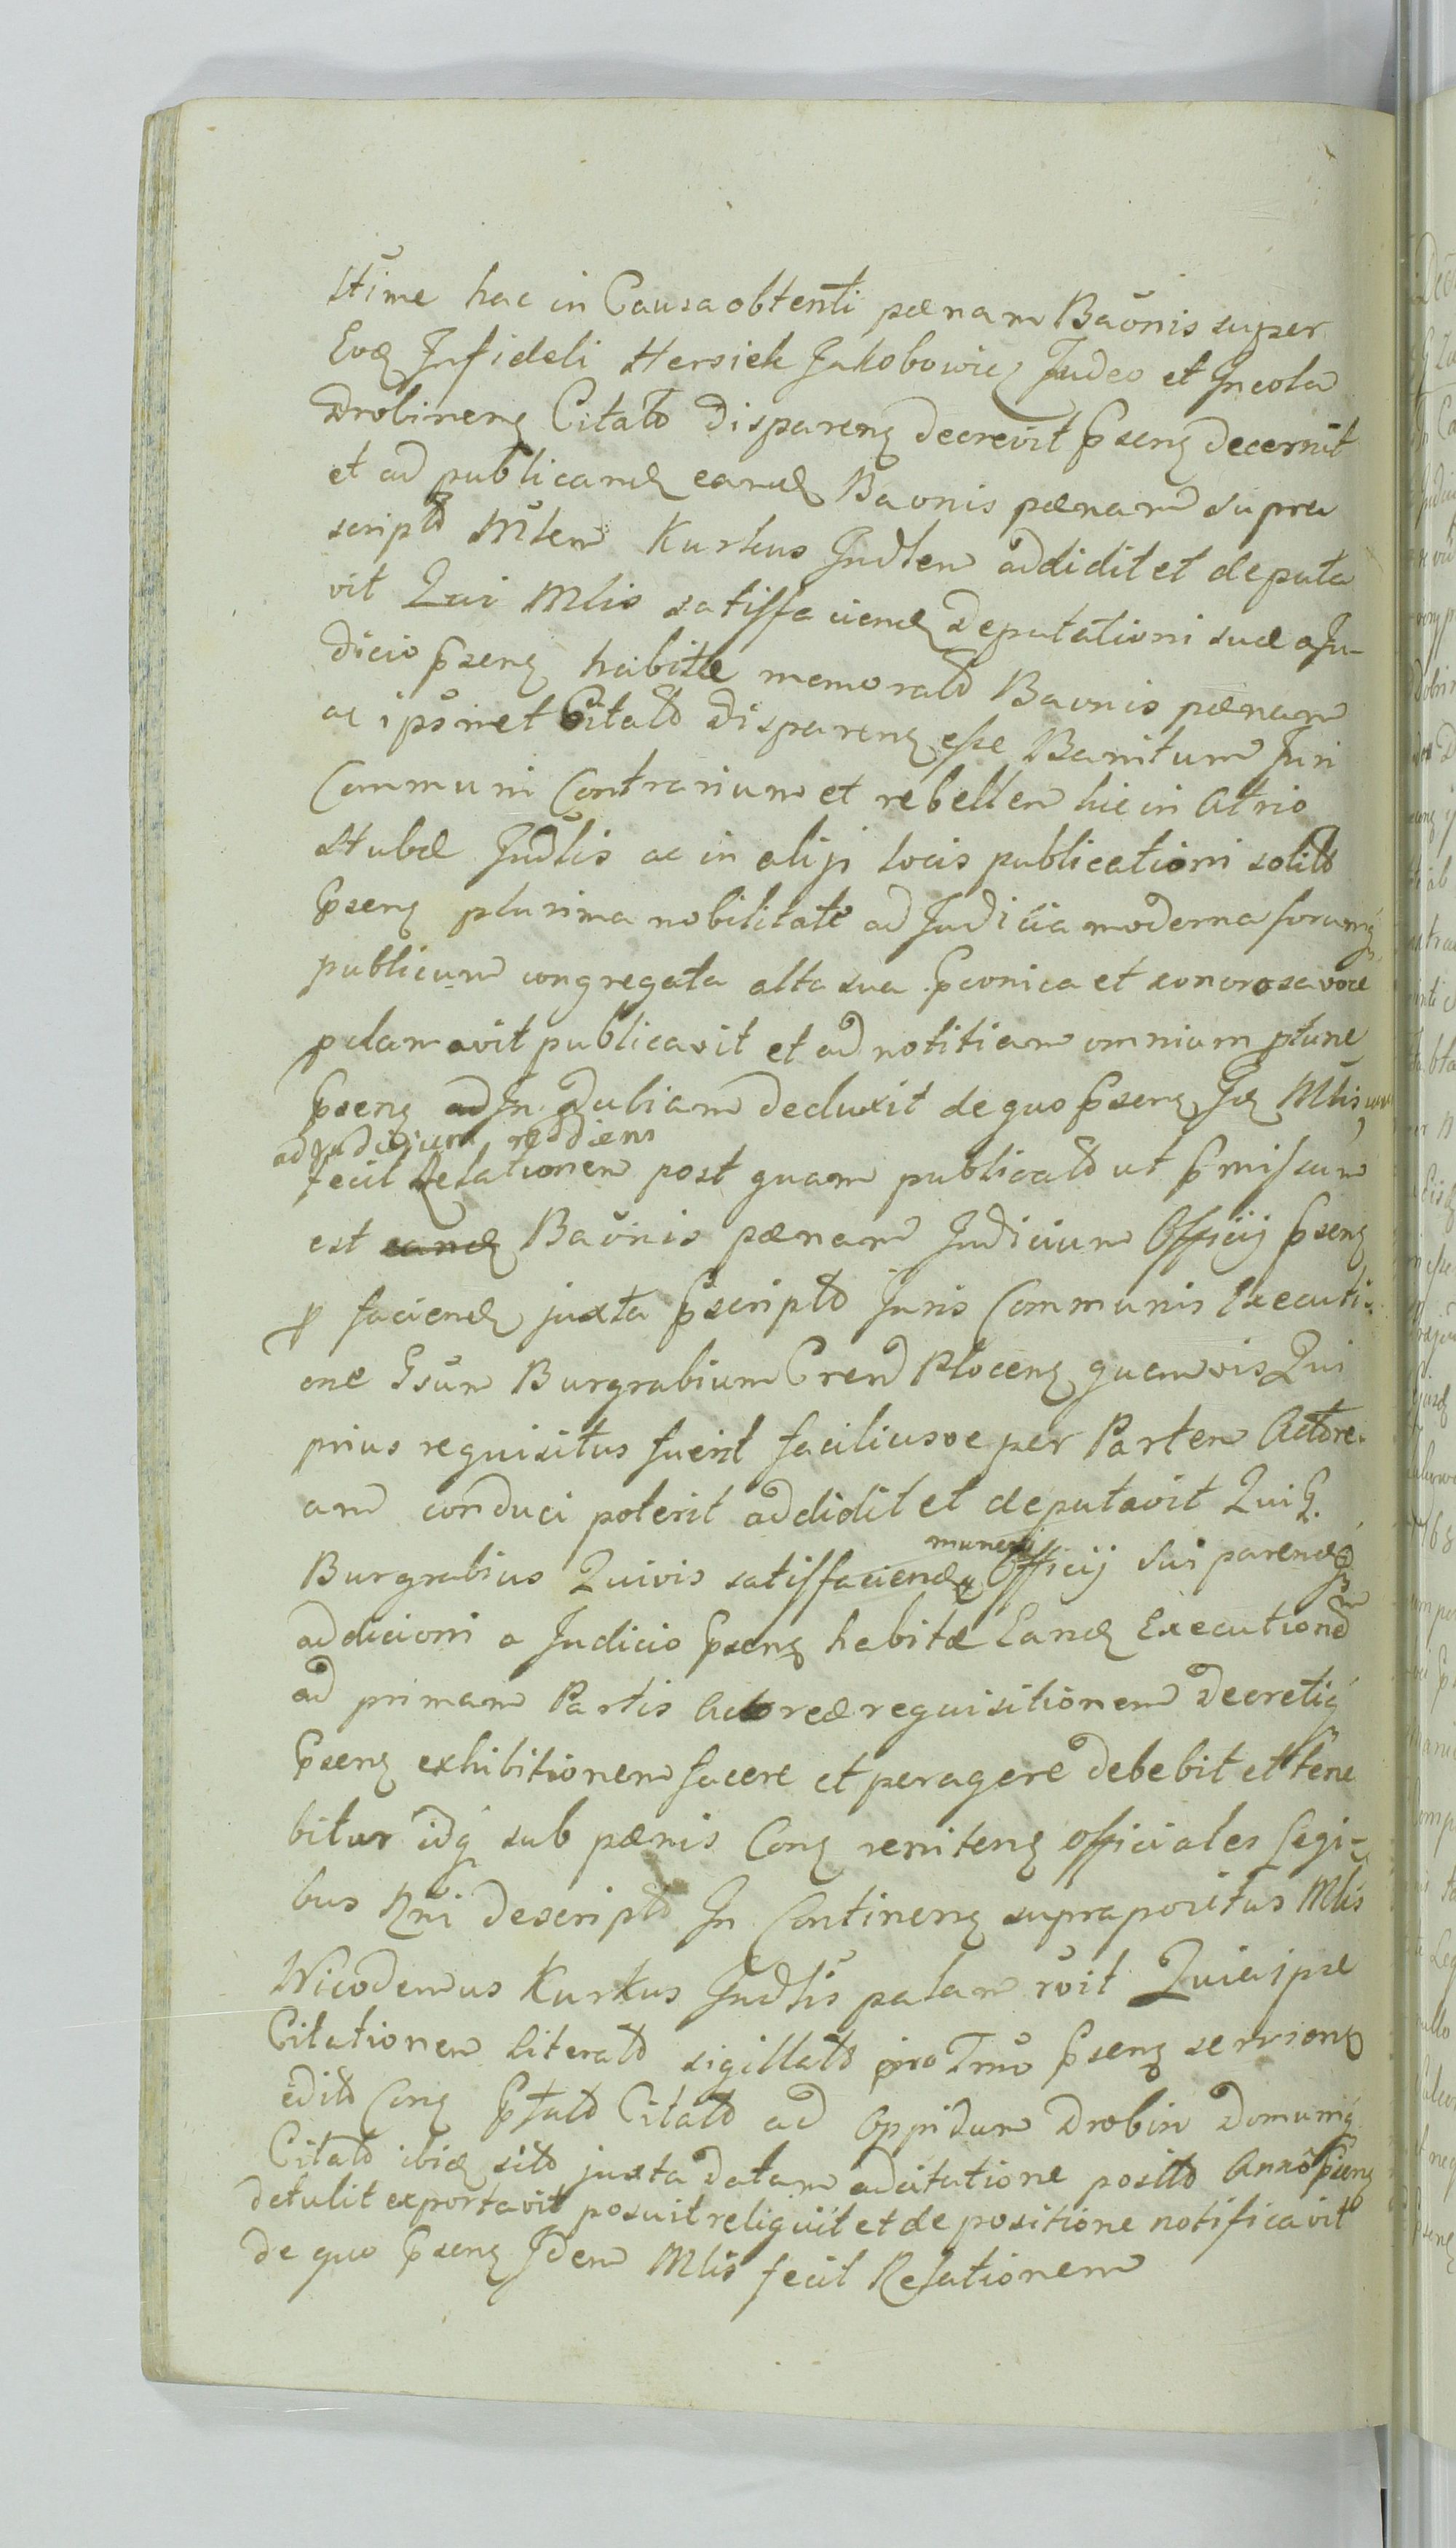 ttime hac in Causa obtenti pænam Baõnis super
Eoq Infideli Hersiek Jakobowicz Judeo et Incola
Drobinenq Citato disparenq decrevit p̃senq decernit
et ad publicandq eandq Baonis pænam supra
scripto Mlem Kurkus Judlem addidit et deputa
vit Qui Mlis satisfaciendq deputationi suæ a Ju-
dicio p̃senq habitæ memorato Baonis pænam
ac ipsmet Citato disparenq esse Banitum Juri
Communi Contrarium et rebellem hic in Atrio
Stubæ Judlis ac in alijs locis publicationi solito
p̃senq plurima nobilitate ad Judicia moderna forumq
publicum congregata alta sua p̃conica et sonorosa voce
palam avit publicavit et ad notitiam omnium ptunc
p̃senq ad In dubiam deduxit de quo p̃senq Jq Mlis
ad Judicium rediens
fecit Relationem post quam publicato ut p̃missum
est eandq Baõnis pænam Judicium Officij p̃senq
p faciendq juxta p̃scripto Juris Communis Executi-
one Gsum Burgrabium Cren Plocenq quemvis Qui
prius requisitus fuerit faciliusve per Partem Actore-
am conduci poterit addidit et deputavit Qui G.
muneri
Burgrabius Quivis satisfaciendq Officij sui parendq
addicioni a Judicio p̃senq habitæ Eandq Executionem
ad primam Partis Actoreæ requisitionem decretiq
p̃senq exhibitionem facere et peragere debebit et tene
bitur idq sub pænis Conq renitenq Officiales Legi-
bus Rni descripto In Continenq suprapositus Mlis
Nicodemus Kurkus Judlis palam rõit Quia ipse
Citationem literato sigillato pro Tmo p̃senq servienq
edito Conq p̃fato Citato ad Oppidum Drobin Domumq
Citato ibiq sito juxta datam ad citatione posito Anno p̃senq
detulit exportavit posuit reliquit et de positione notificavit
de quo p̃senq Idem Mlis fecit Relationem